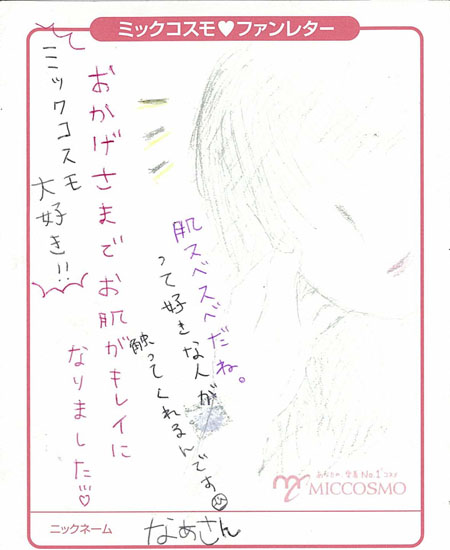 ミックコスモ♥ファンレター
ミックコスモ
大好き!!
おかげさまでお肌がキレイに
なりました♡
肌スベスベだね。
って好きな人が
触ってくれるんです
MICCOSMO
ニックネーム
なぁさん